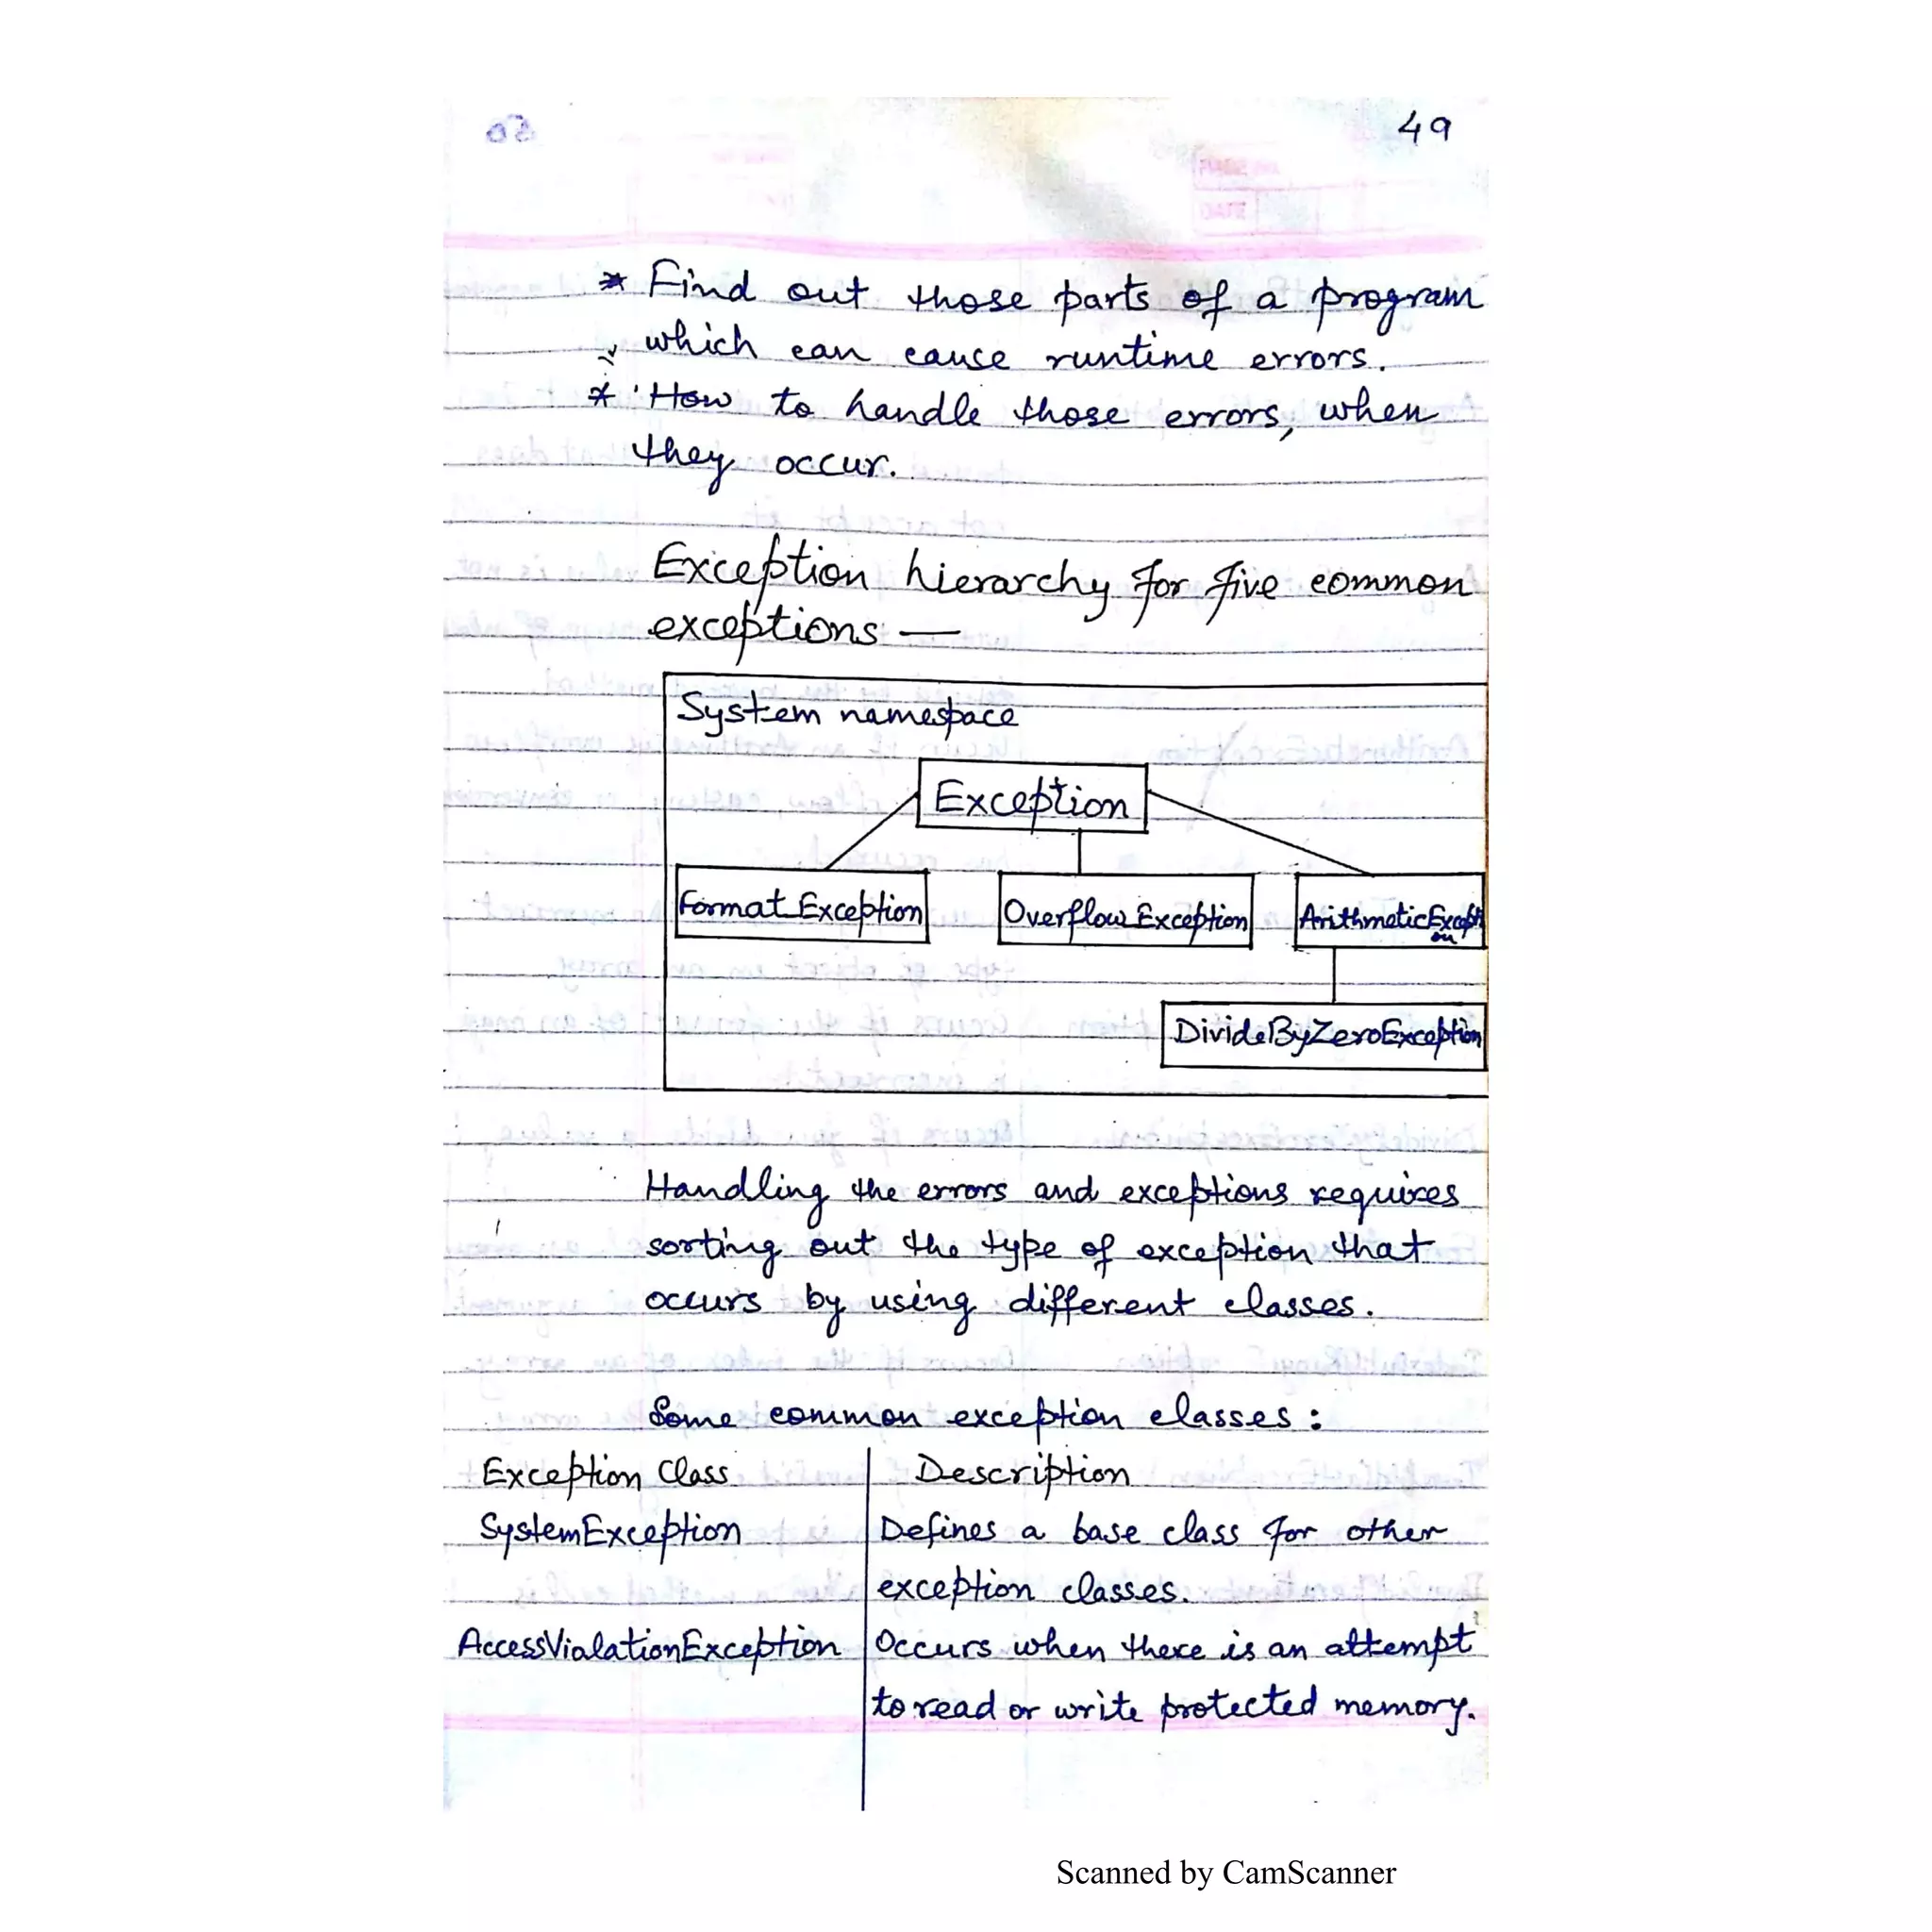 49
50
* Find out those parts of a program
which can cause runtime errors.
* How to handle those errors, when
they occur.
Exception hierarchy for five common
exceptions —
System namespace
Exception
FormatException
OverflowException
ArithmeticExcepti
on
DivideByZeroException
Handling the errors and exceptions requires
sorting out the type of exception that
occurs by using different classes.
Some common exception classes :
Exception Class
Description
SystemException
Defines a base class for other
exception classes.
AccessViolationException
Occurs when there is an attempt
to read or write protected memory.
Scanned by CamScanner